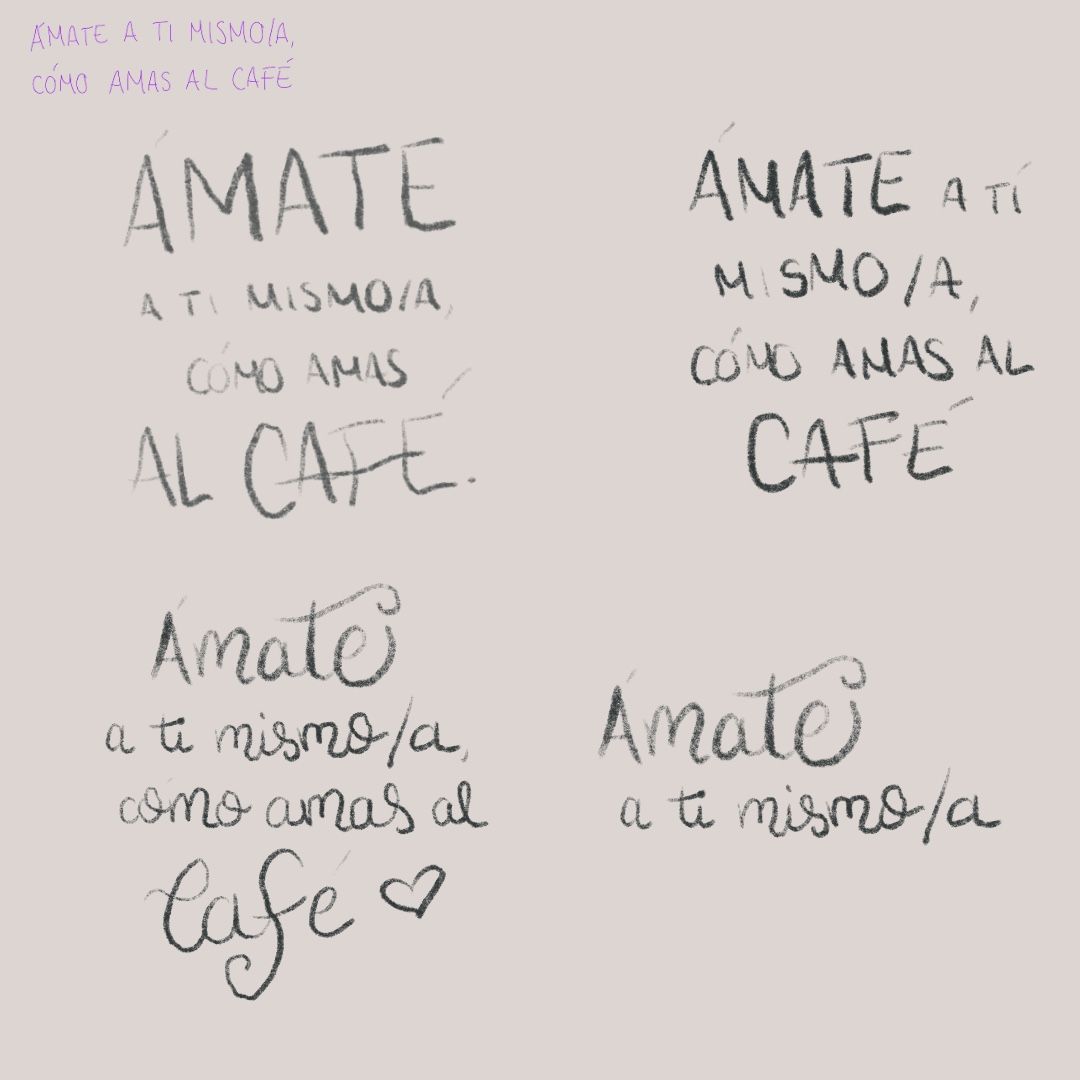 ÁMATE A TI MISMO/A,
CÓMO AMAS AL CAFÉ
ÁMATE
A TI MISMO/A,
CÓMO AMAS
AL CAFÉ.
ÁMATE A TÍ
MISMO/A,
CÓMO AMAS AL
CAFÉ
Ámate
a ti mismo/a,
cómo amas al
Café
Ámate
a ti mismo/a